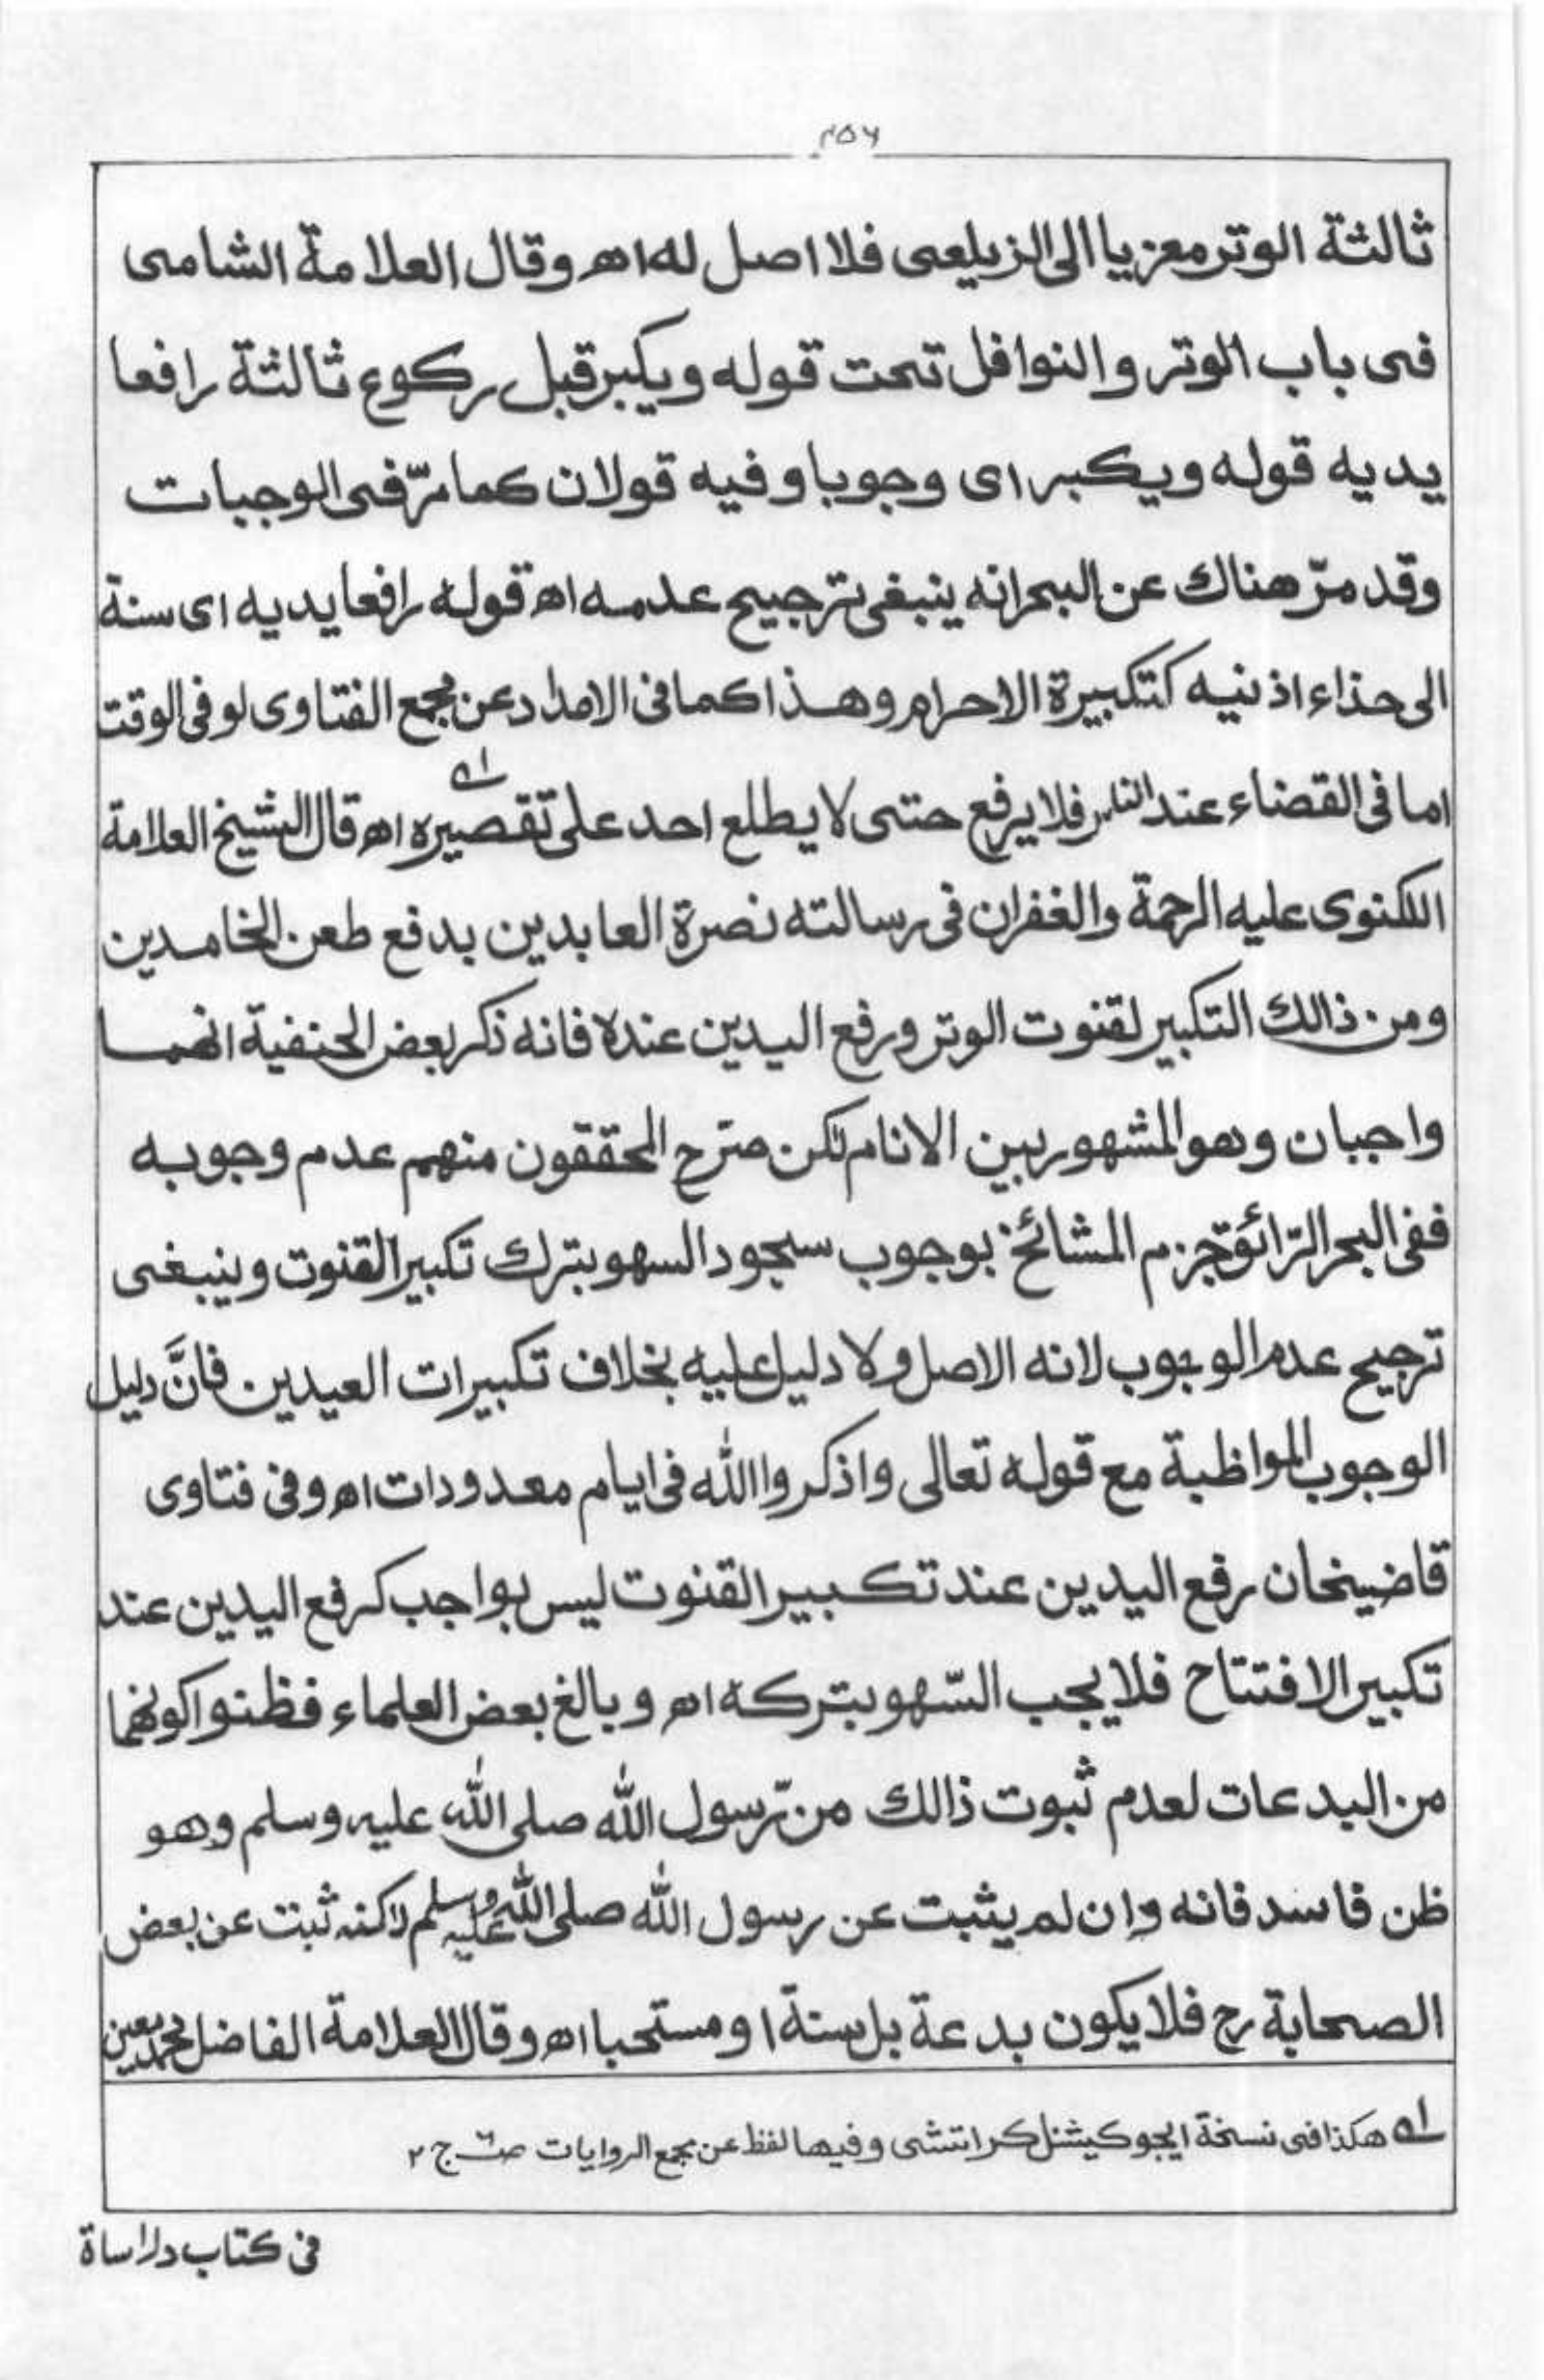 ۲۵۶
ثالثة الوتر معزيا الى الزيلعى فلا اصل له اه وقال العلامة الشامى
فى باب الوتر والنوافل تحت قوله ويكبر قبل ركوع ثالثة رافعا
يديه قوله ويكبر اى وجوبا وفيه قولان كما مرّ فى الوجبات
وقد مرّ هناك عن البحر انه ينبغى ترجيح عدمه اه قوله رافعا يديه اى سنة
الى حذاء اذنيه كتكبيرة الاحرام وهذا كما فى الامداد عن مجمع الفتاوى لو فى الوقت
اما فى القضاء عند الناس فلا يرفع حتى لا يطلع احد على تقصيره اه قال الشيخ العلامة
اللكنوى عليه الرحمة والغفران فى رسالته نصرة العابدين بدفع طعن الخامدين
ومن ذالك التكبير لقنوت الوتر ورفع اليدين عنده فانه ذكر بعض الحنفية انهما
واجبان وهو المشهور بين الانام لكن صرّح المحققون منهم عدم وجوبه
ففى البحر الرّائق جزم المشائخ بوجوب سجود السهو بترك تكبير القنوت وينبغى
ترجيح عدم الوجوب لانه الاصل ولا دليل عليه بخلاف تكبيرات العيدين فانَّ دليل
الوجوب المواظبة مع قوله تعالى واذكروا الله فى ايام معدودات اه وفى فتاوى
قاضيخان رفع اليدين عند تكبير القنوت ليس بواجب كرفع اليدين عند
تكبير الافتتاح فلا يجب السّهو بتركه اه وبالغ بعض العلماء فظنوا كونهما
من البدعات لعدم ثبوت ذالك من رّسول الله صلى الله عليه وسلم وهو
ظن فاسد فانه وان لم يثبت عن رسول الله صلى الله عليه وسلم لاكنه ثبت عن بعض
الصحابة رح فلا يكون بدعة بل سنة او مستحبا اه وقال العلامة الفاضل محمد معين
له هكذا فى نسخة ايجوكيشنل كراتشى وفيها لفظ عن مجمع الروايات ج ۲
فى كتاب دراساة